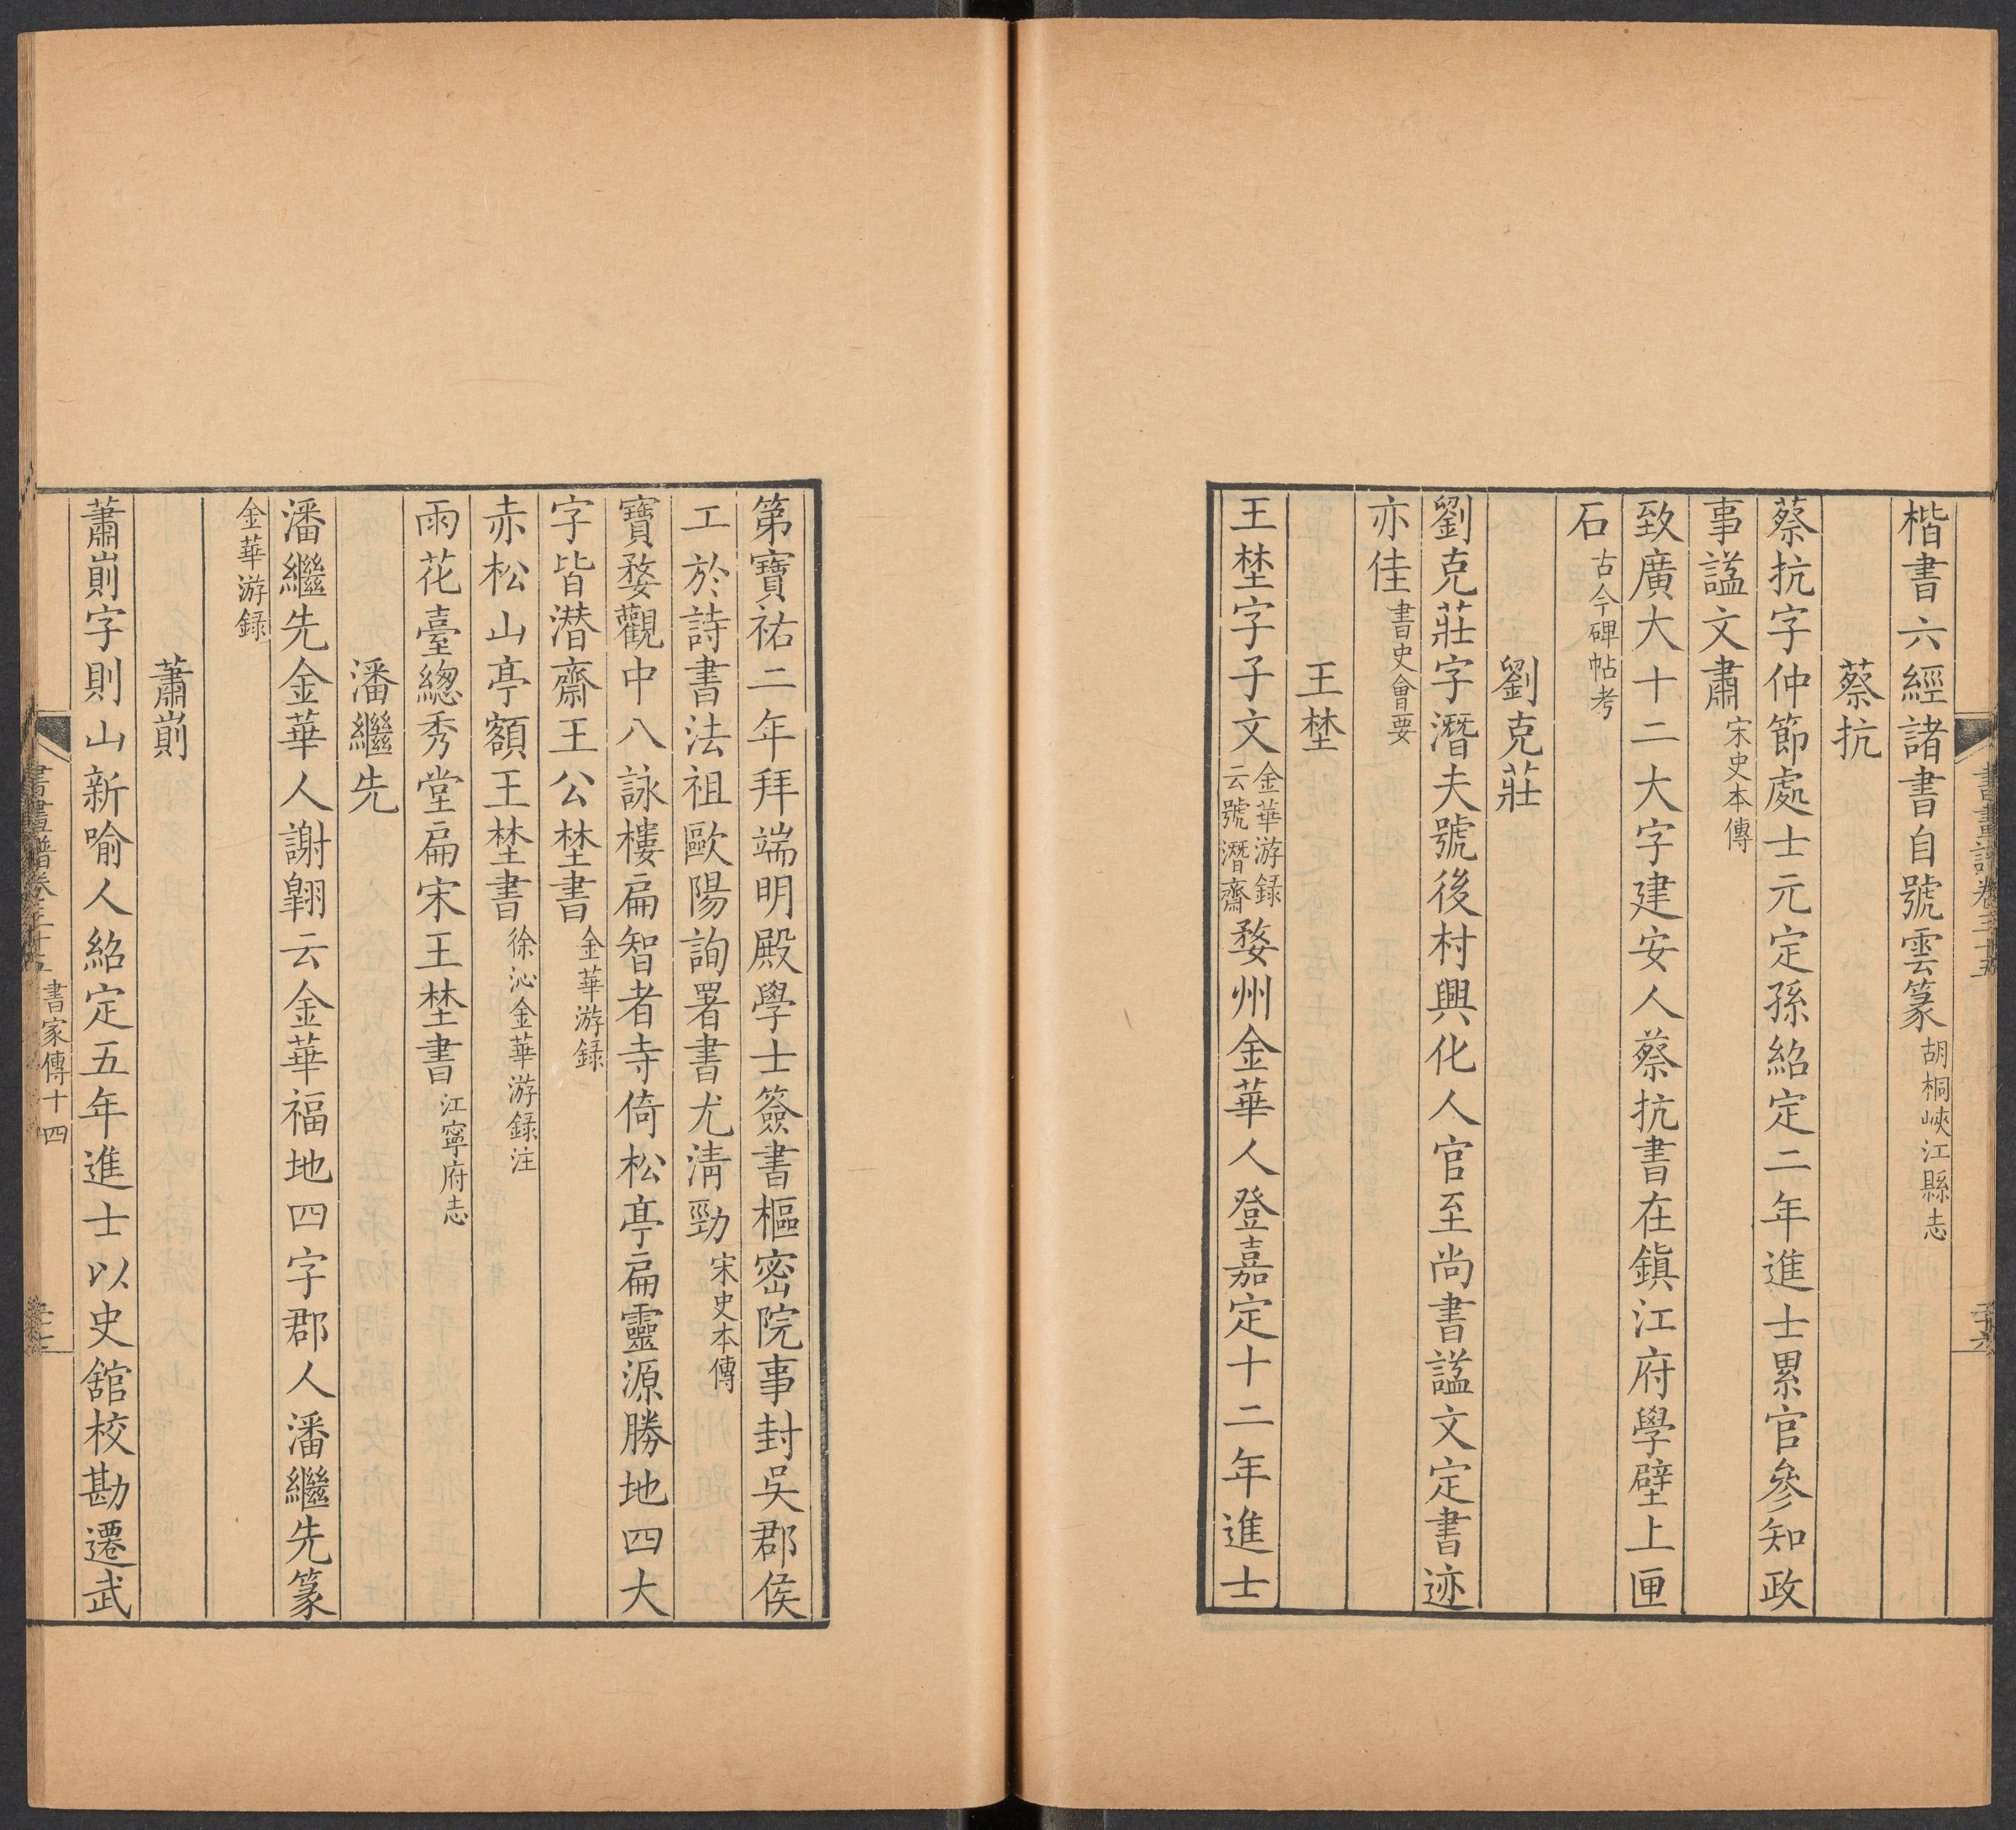 楷書六經諸書自號雲篆胡桐峽江縣志
蔡抗
蔡抗字仲節處士元定孫紹定二年進士累官參知政
事謚文肅宋史本傳
致廣大十二大字建安人蔡抗書在鎮江府學壁上匣
石古今碑帖考
劉克莊
劉克莊字潛夫號後村興化人官至尚書謚文定書迹
亦佳書史會要
王埜
王埜字子文金華游録云號潛齋婺州金華人登嘉定十二年進士
第寶祐二年拜端明殿學士簽書樞密院事封吳郡侯
工於詩書法祖歐陽詢署書尤淸勁宋史本傳
寶婺觀中八詠樓扁智者寺倚松亭扁靈源勝地四大
字皆潛齋王公埜書金華游録
赤松山亭額王埜書徐沁金華游録注
雨花臺緫秀堂扁宋王埜書江寧府志
潘繼先
潘繼先金華人謝翺云金華福地四字郡人潘繼先篆
金華游録
蕭崱
蕭崱字則山新喻人紹定五年進士以史舘校勘遷武
書畫譜卷三十五
書家傳十四